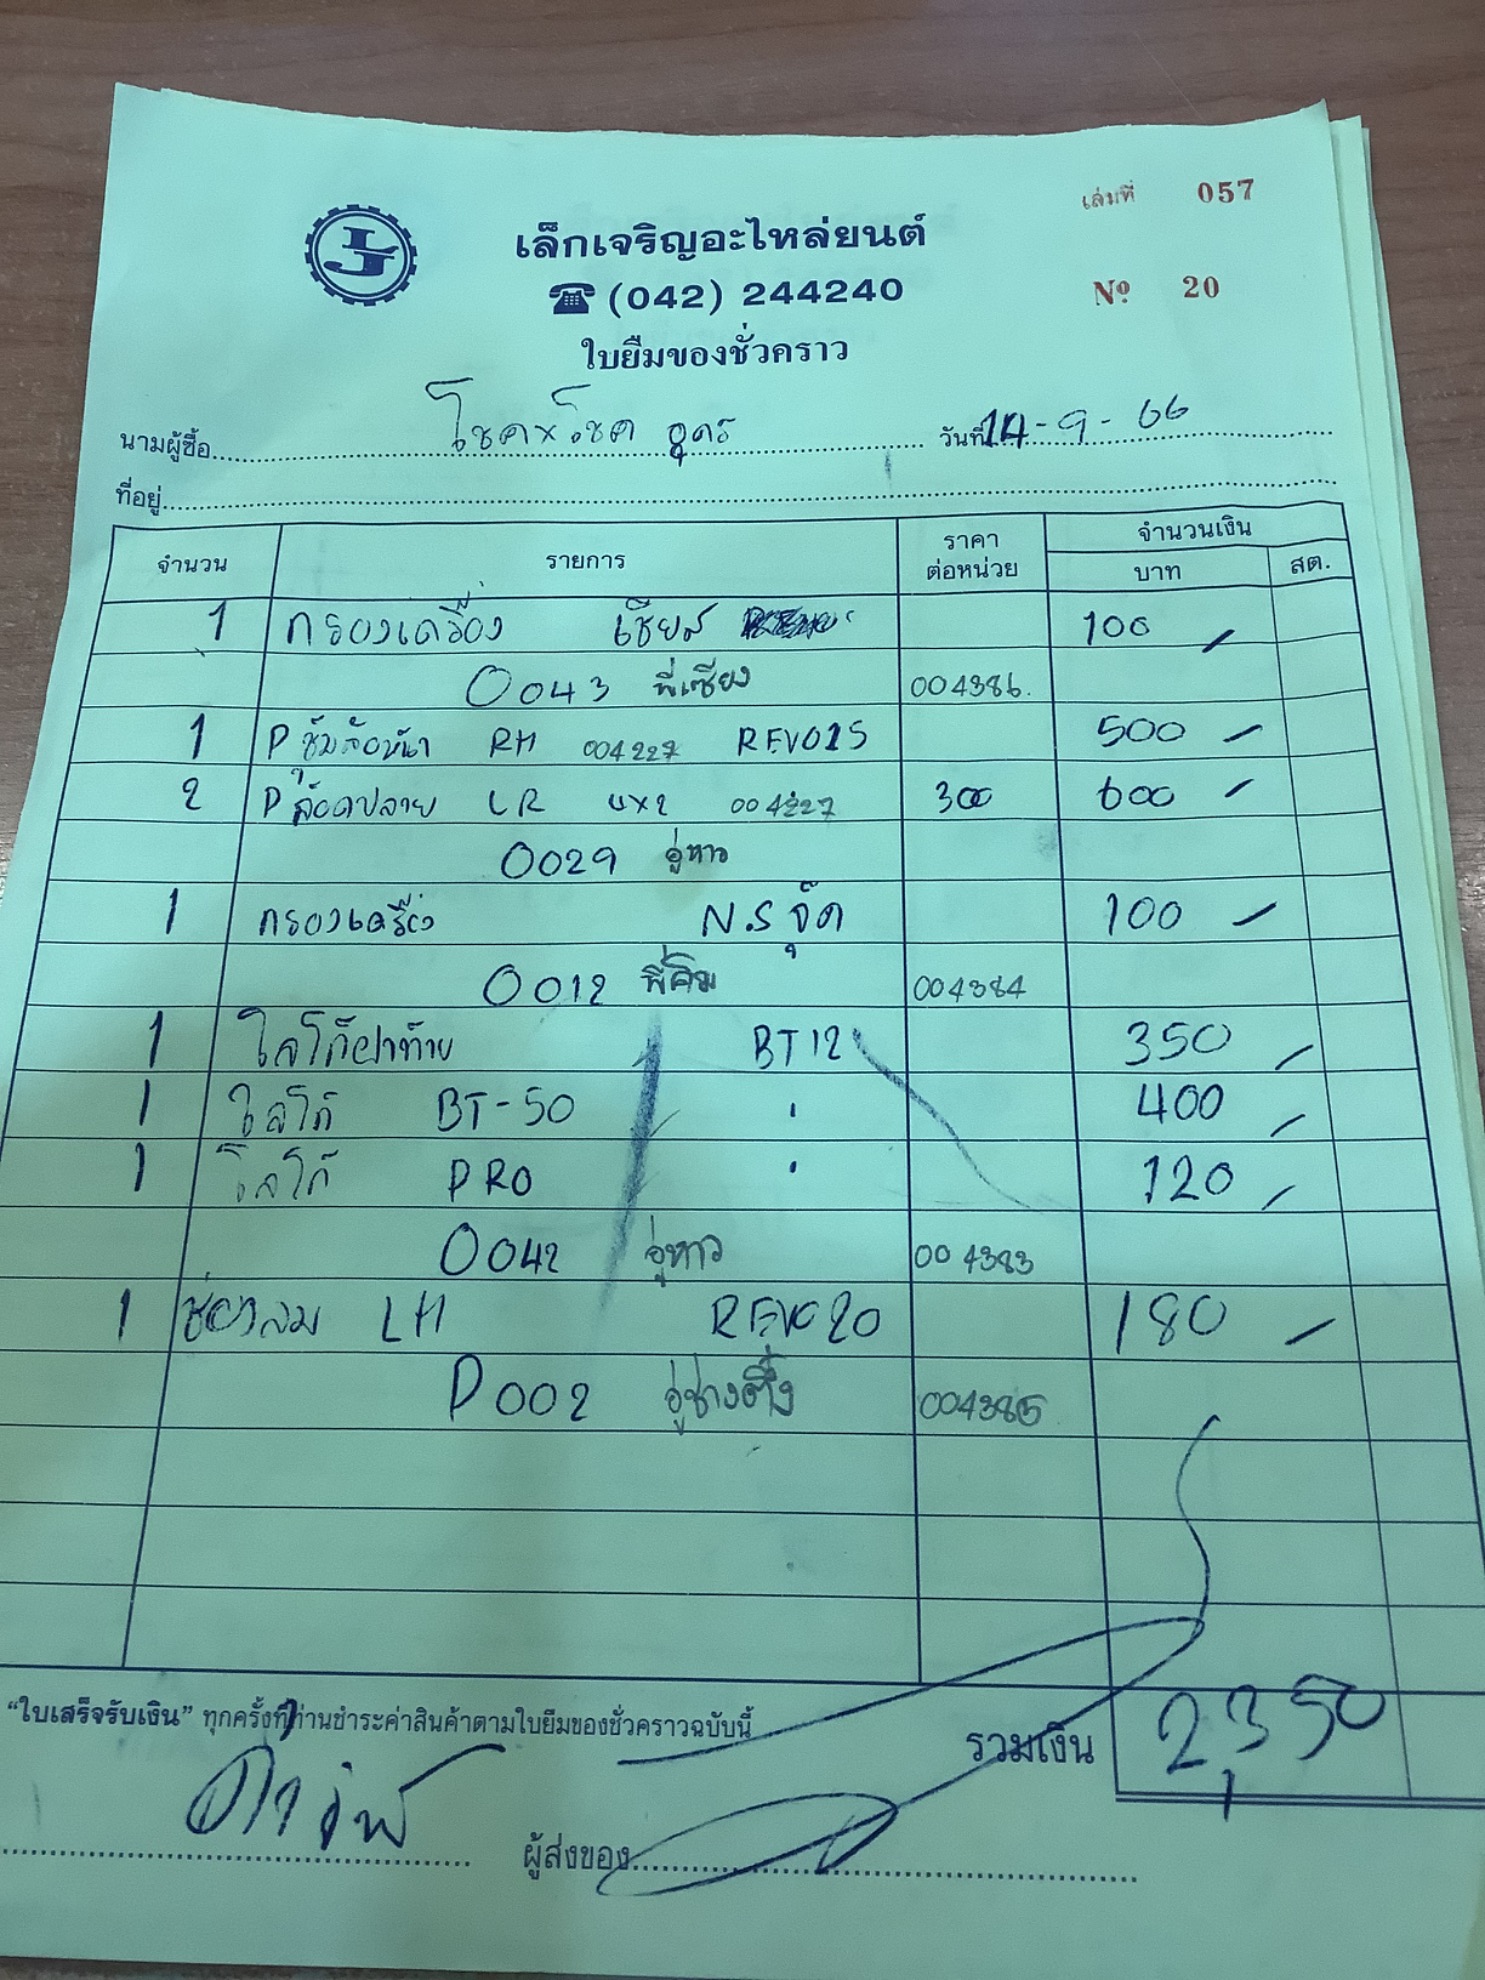 เล่มที่ 057
เล็กเจริญอะไหล่ยนต์
(042) 244240
Nº 20
ใบยืมของชั่วคราว
นามผู้ซื้อ โชคxโชค อุดร วันที่ 14-9-66
ที่อยู่
จำนวน รายการ ราคาต่อหน่วย จำนวนเงิน บาท สต.
1 กรองเครื่อง เชียส 100
0043 พี่เซียง 004386.
1 P ซุ้มล้อหน้า RH 004227 REVO15 500
2 P ล้อดปลาย LR 4x2 004227 300 600
0029 อู่หาว
1 กรองเครื่อง N.S จุ๊ด 100
0012 พี่คิม 004384
1 โลโก้ฝาท้าย BT12 350
1 โลโก้ BT-50 " 400
1 โลโก้ PRO " 120
0042 อู่หาว 004383
1 ช่องลม LH REVO20 180
P002 อู่ช่างตึ๋ง 004385
"ใบเสร็จรับเงิน" ทุกครั้งที่ท่านชำระค่าสินค้าตามใบยืมของชั่วคราวฉบับนี้
รวมเงิน 2,350
ผู้ส่งของ